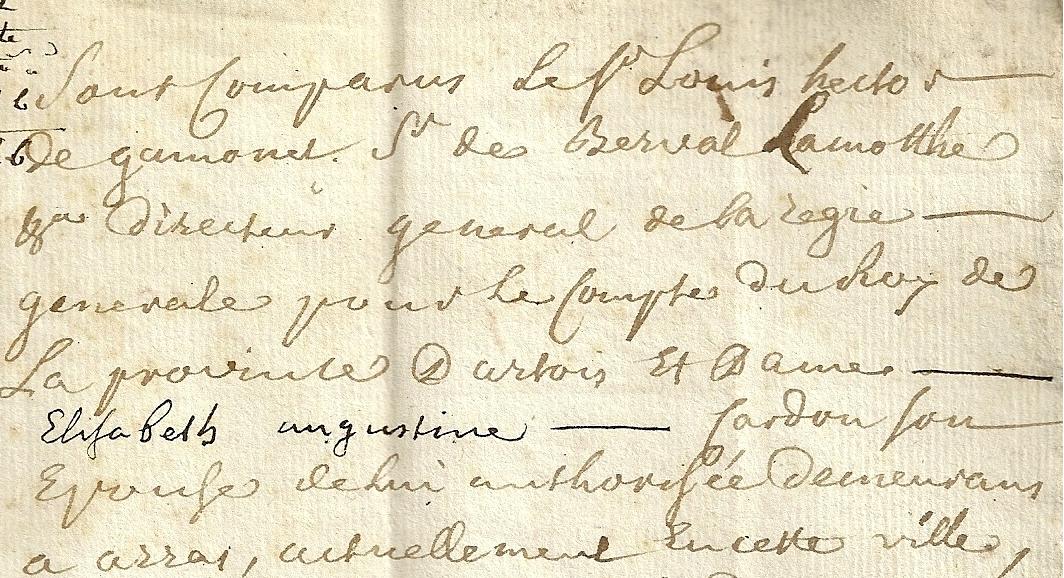 Sont Comparus Le Sr Louis hector
De gamonet. Sr de Berval Lamotthe
directeur general de la regie
generale pour Le Compte Du Roy de
La province D'artois Et Dame
Elisabeth augustine Cardon son
Epouse de lui authorisée Demeurans
a arras, actuellement En cette ville,